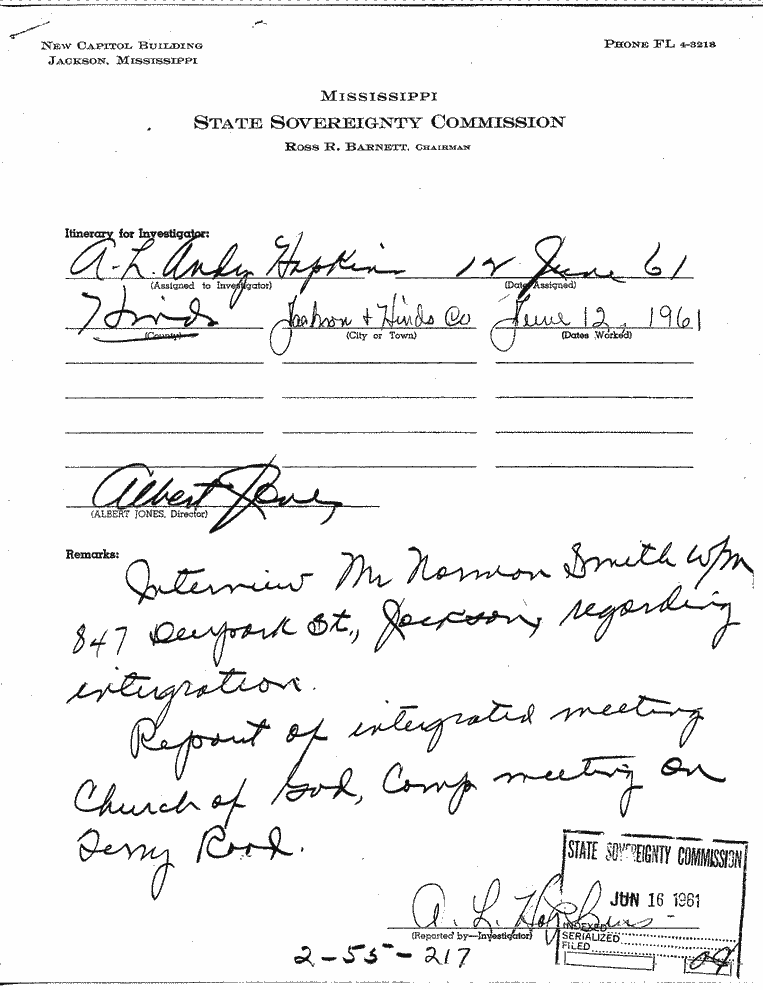 NEW CAPITOL BUILDING
JACKSON, MISSISSIPPI
PHONE FL 4-3218
MISSISSIPPI
STATE SOVEREIGNTY COMMISSION
ROSS R. BARNETT, CHAIRMAN
Itinerary for Investigator:
A. L. Andy Hopkins 12 June 61
(Assigned to Investigator) (Date Assigned)
Hinds Jackson + Hinds Co June 12, 1961
(County) (City or Town) (Dates Worked)
Albert Jones
(ALBERT JONES, Director)
Remarks:
Interview Mr Norman Smith W/M
847 Deerpark St., Jackson, regarding
intergration.
Report of intergrated meeting
Church of God, Camp meeting on
Terry Road.
STATE SOVEREIGNTY COMMISSION
JUN 16 1961
A. L. Hopkins
(Reported by—Investigator)
INDEXED
SERIALIZED
FILED
2-55-217